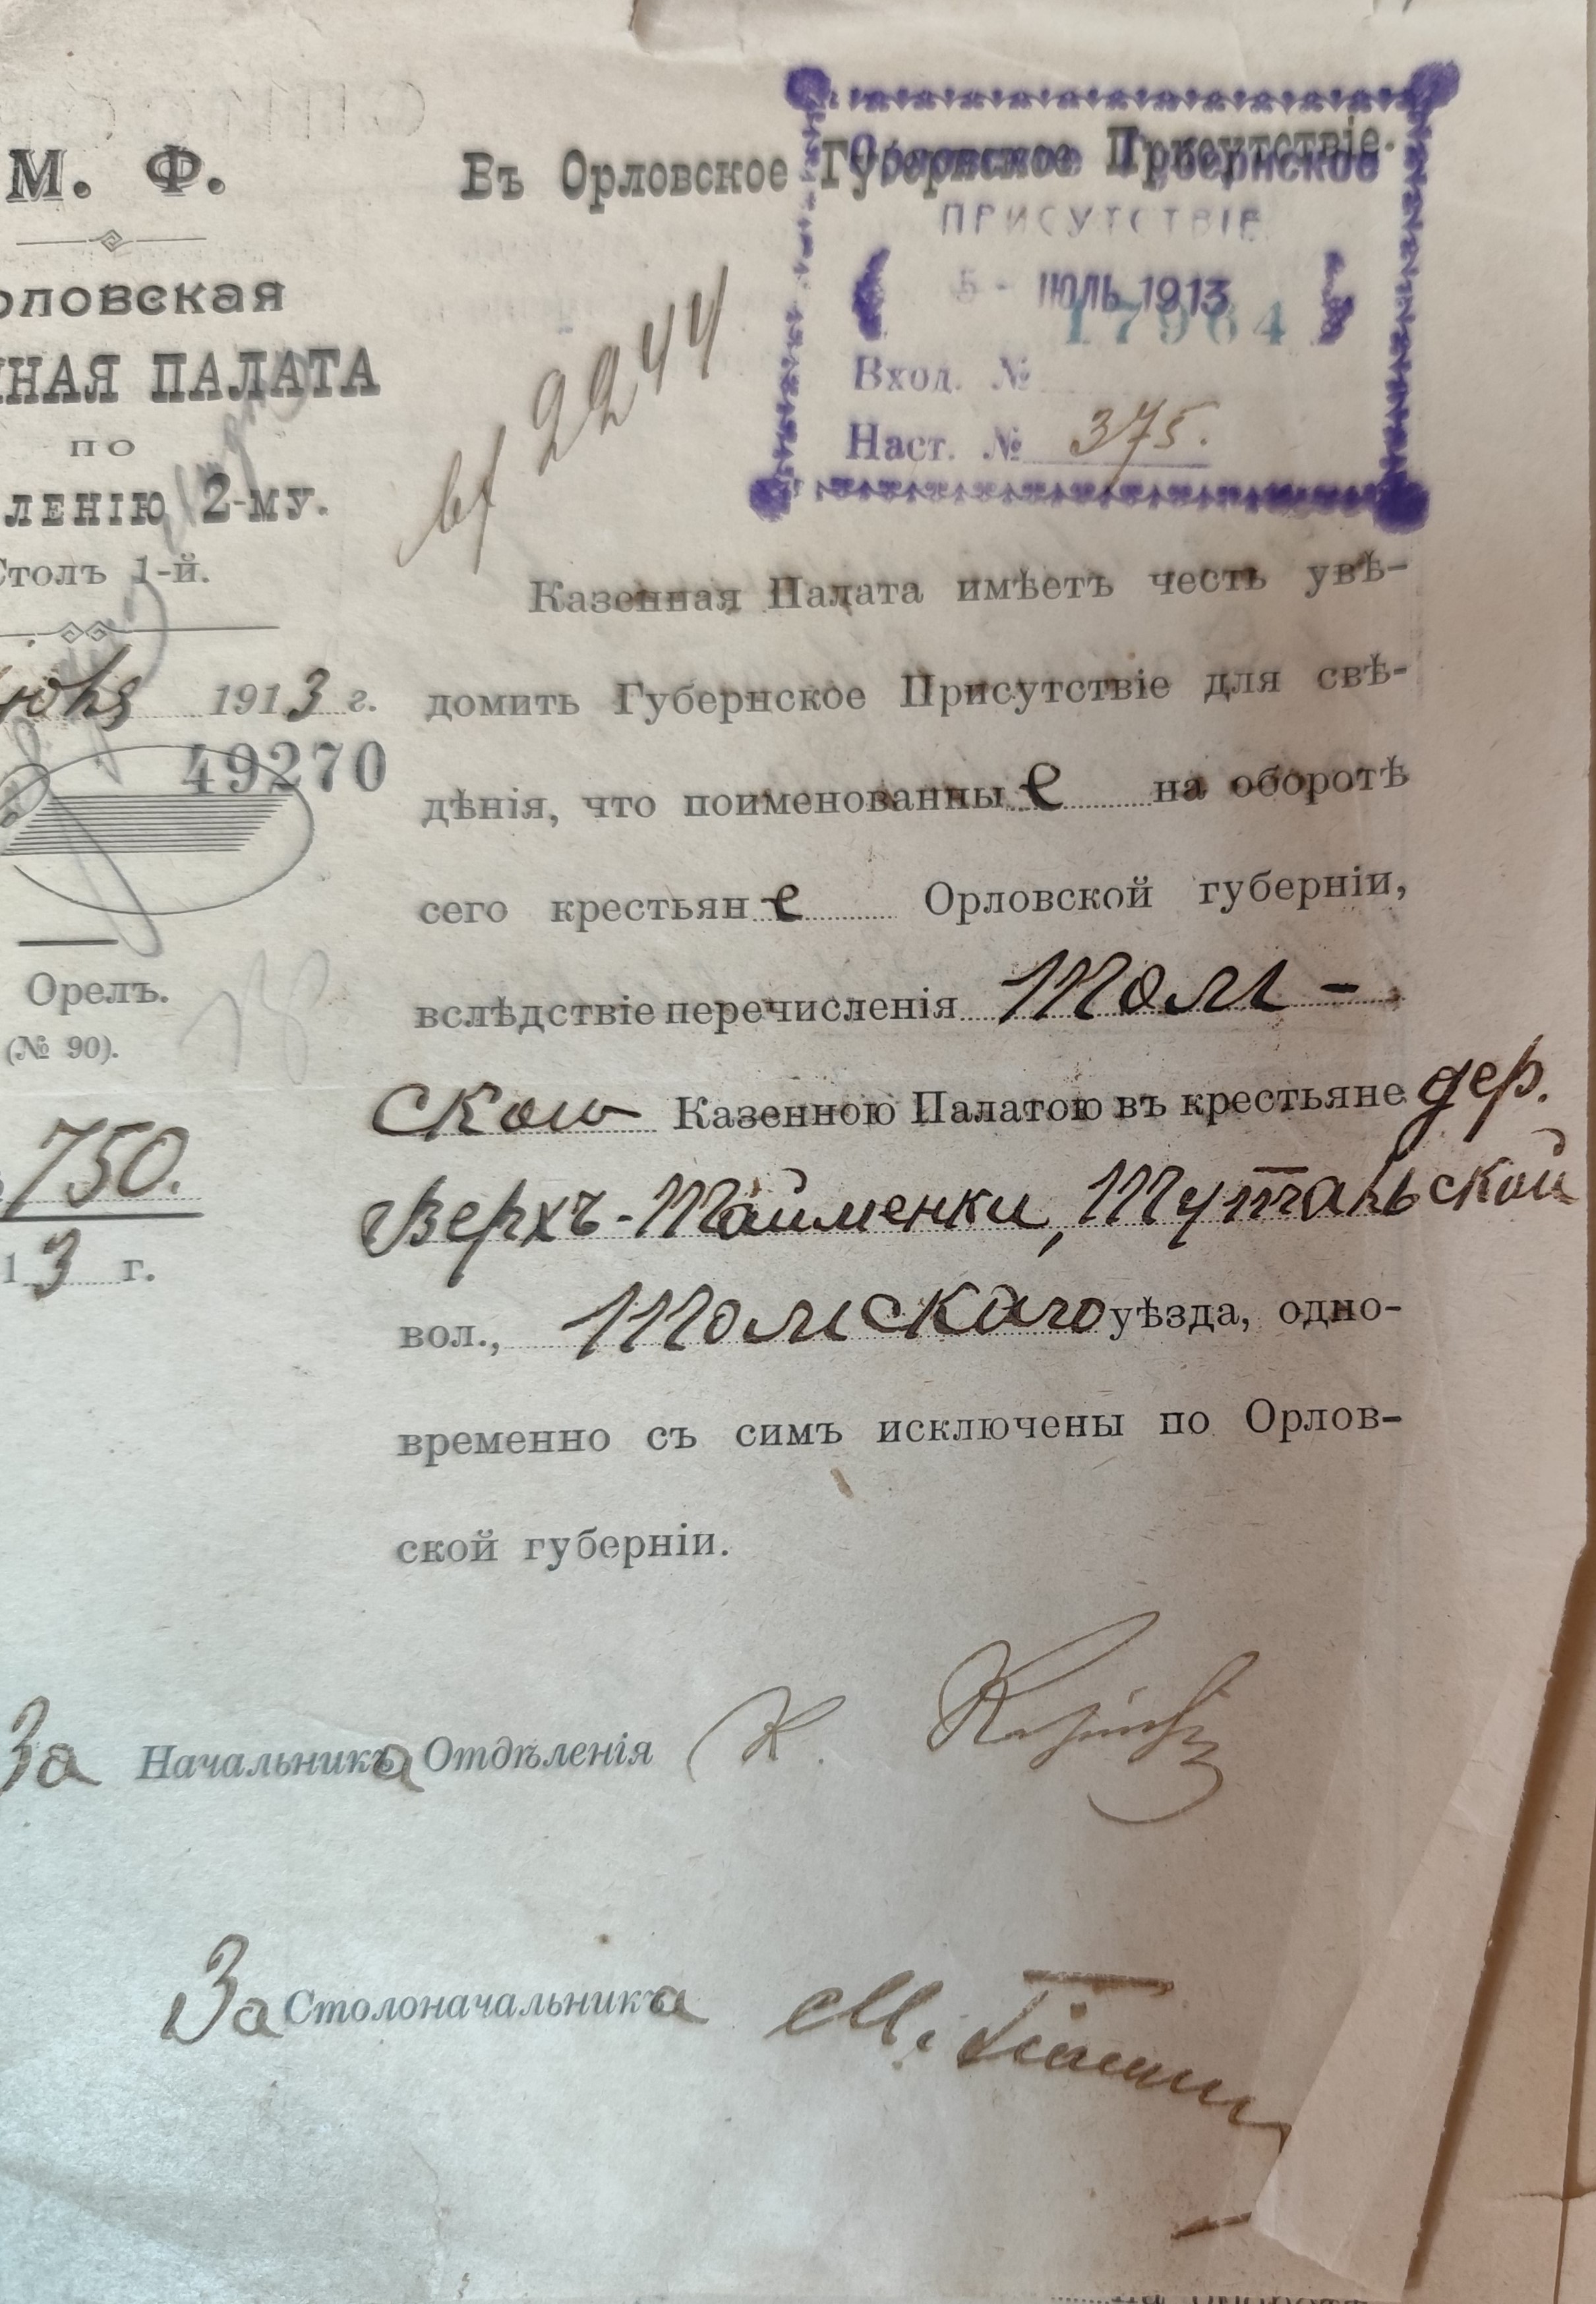 М. Ф.
ловская
ННАЯ ПАЛАТА
ПО
ЛЕНІЮ 2-МУ.
Столъ 1-й.
1913 г.
49270
Орелъ.
(№ 90).
750.
13 г.
Въ Орловское Губернское Присутствіе.
Орловское Губернское
ПРИСУТСТВІЕ
5 - ІЮЛЬ 1913
17964
Вход. №
Наст. № 375.
2244
Казенная Палата имѣетъ честь увѣ-
домить Губернское Присутствіе для свѣ-
дѣнія, что поименованные на оборотѣ
сего крестьяне Орловской губерніи,
вслѣдствіе перечисленія Том-
скою Казенною Палатою въ крестьяне дер.
Верхъ-Тайменки, Тутальской
вол., Томскаго уѣзда, одно-
временно съ симъ исключены по Орлов-
ской губерніи.
За Начальника Отдѣленія К.
За Столоначальника М.